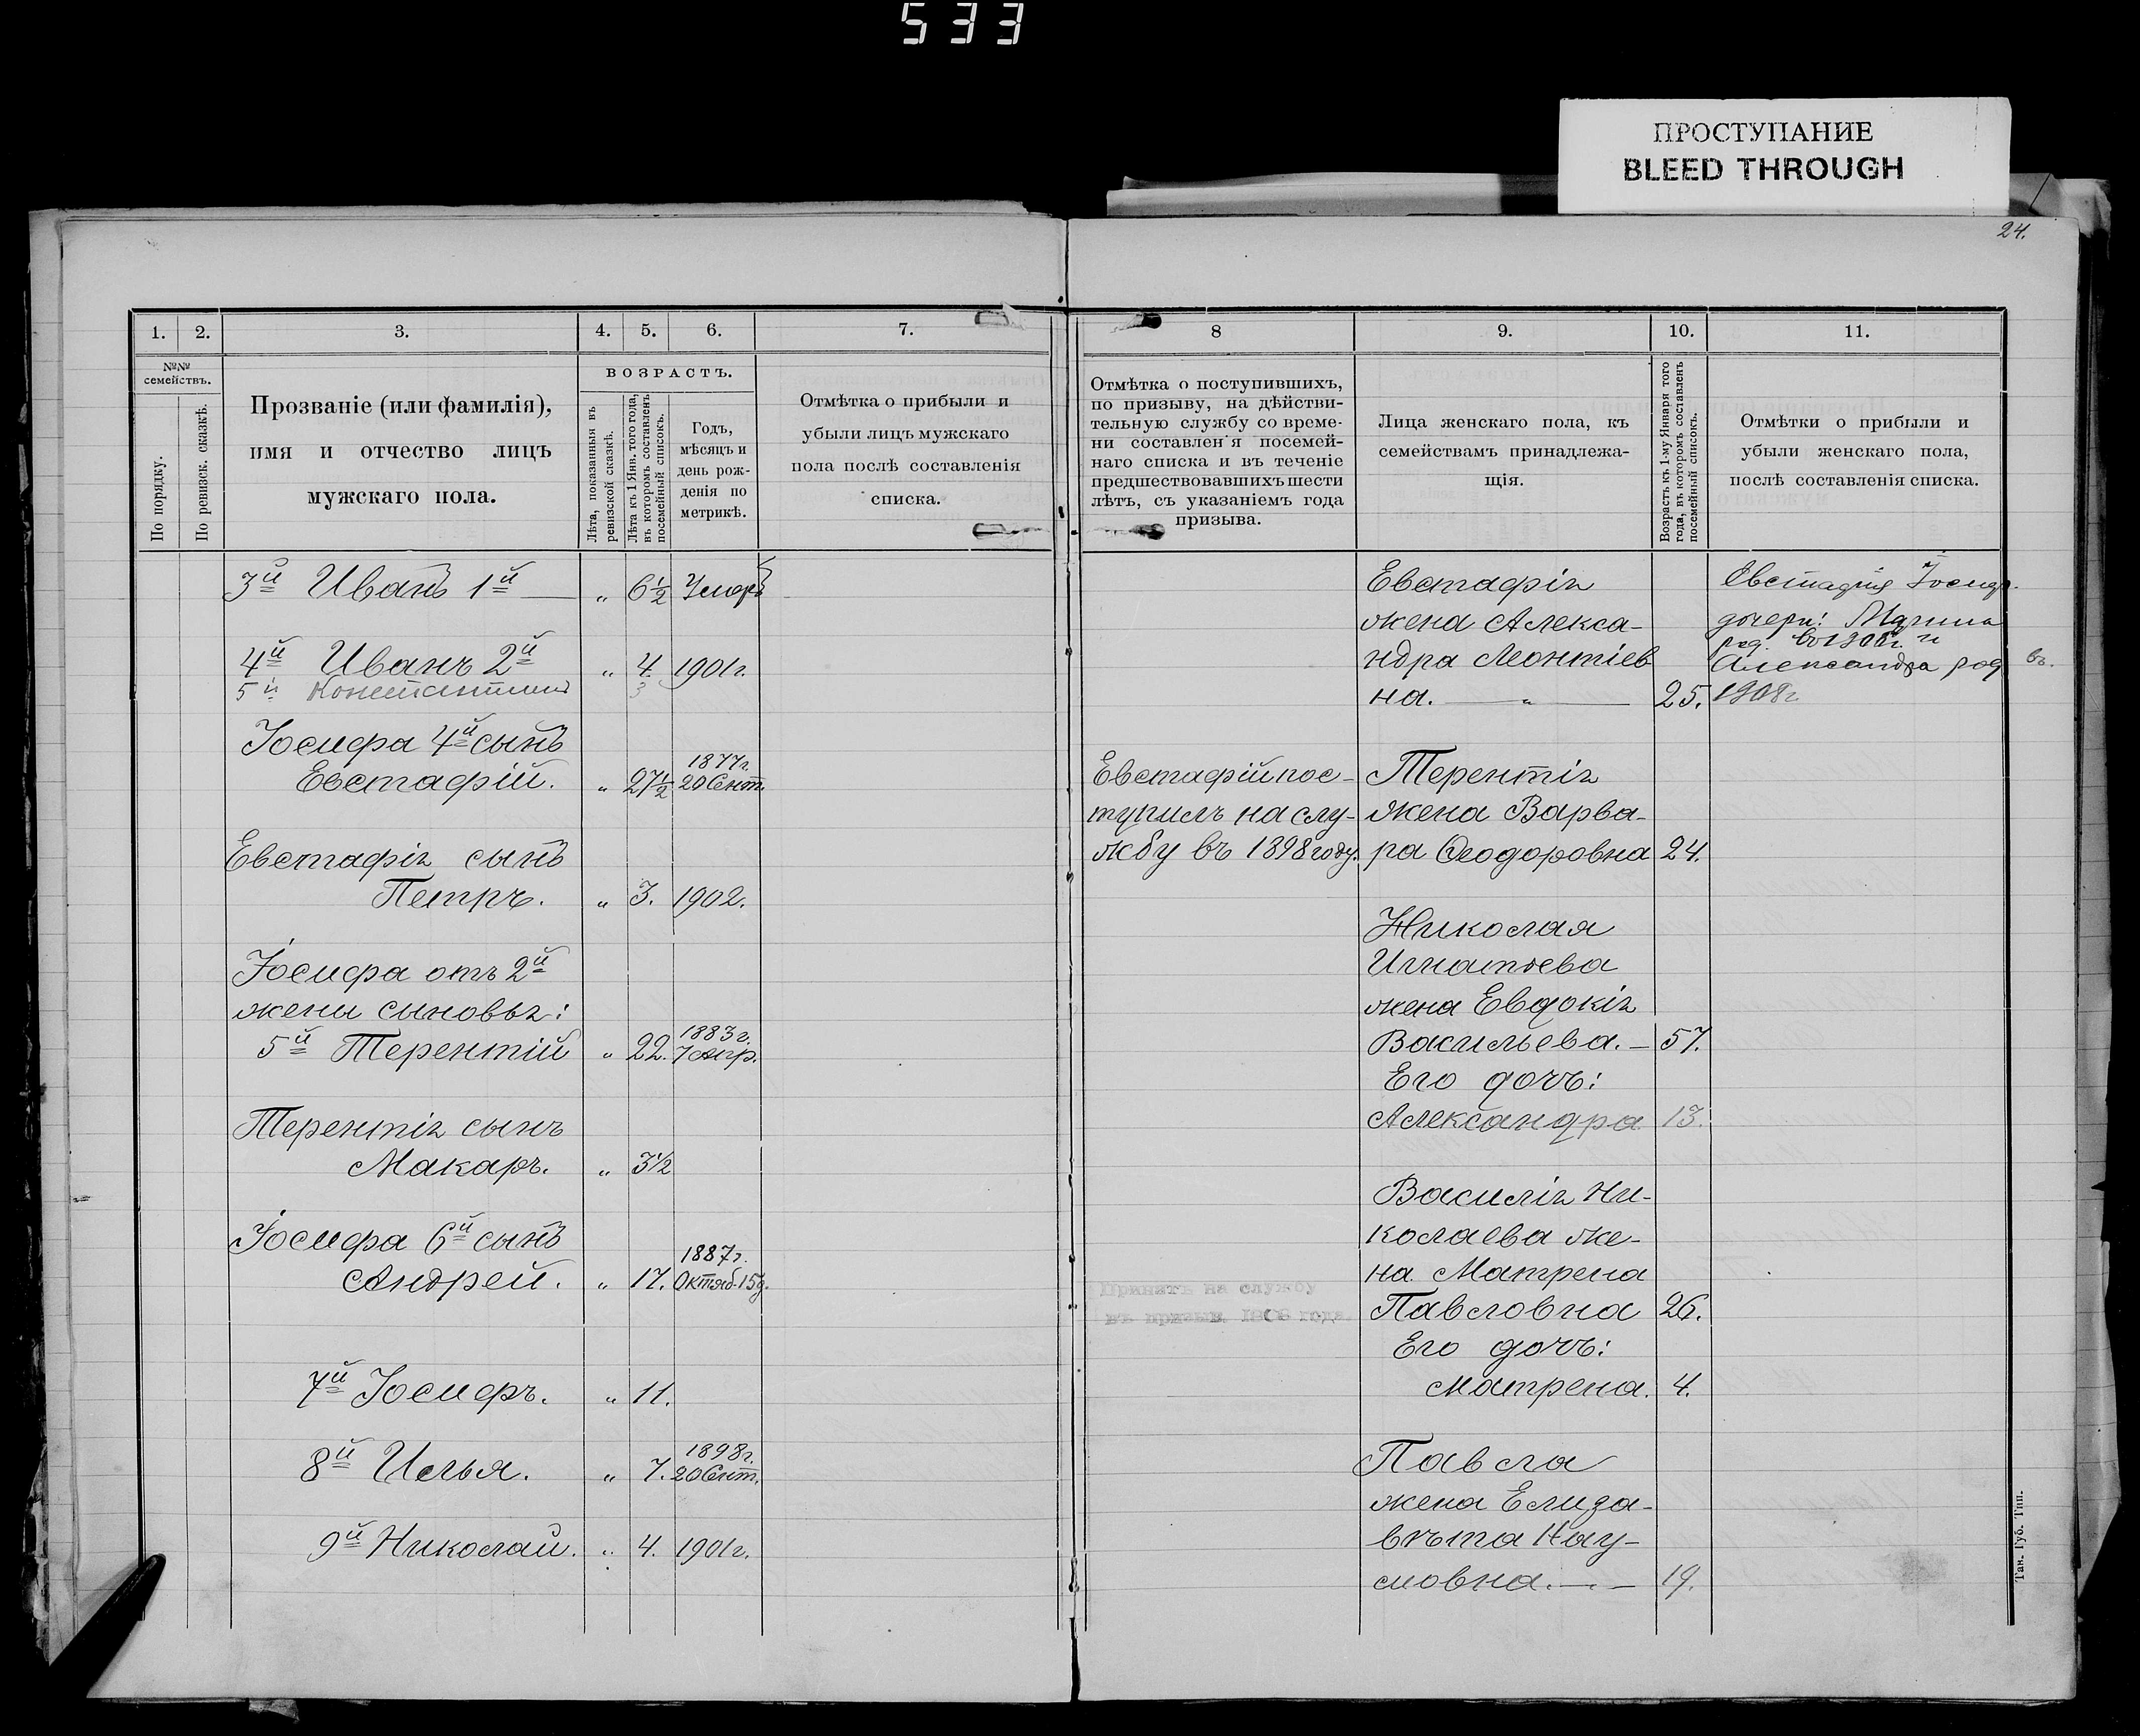 533
ПРОСТУПАНИЕ
BLEED THROUGH
24.
1.
2.
3.
4.
5.
6.
7.
№№
семействъ.
По порядку.
По ревизск. сказкѣ.
Прозваніе (или фамилія),
имя и отчество лицъ
мужскаго пола.
ВОЗРАСТЪ.
Лѣта, показанныя въ
ревизской сказкѣ.
Лѣта къ 1 Янв. того года,
въ которомъ составленъ
посемейный списокъ.
Годъ,
мѣсяцъ и
день рож-
денія по
метрикѣ.
Отмѣтка о прибыли и
убыли лицъ мужскаго
пола послѣ составленія
списка.
3й Иванъ 1й — „ 6½ Умеръ
4й Иванъ 2й „ 4. 1901г.
5й Константинъ 3
Іосифа 4й сынъ
Евстафій. „ 27½ 1877г. 20 Сент.
Евстафія сынъ
Петръ. „ 3. 1902.
Іосифа отъ 2й
жены сыновья:
5й Терентій „ 22. 1883г. 7 Апр.
Терентія сынъ
Макаръ. „ 3½
Іосифа 6й сынъ
Андрей. „ 17. 1887г. Октяб. 15д.
7й Іосифъ. „ 11.
8й Илья. „ 7. 1898г. 20 Сент.
9й Николай. „ 4. 1901г.
8
9.
10.
11.
Отмѣтка о поступившихъ,
по призыву, на дѣйстви-
тельную службу со време-
ни составленія посемей-
наго списка и въ теченіе
предшествовавшихъ шести
лѣтъ, съ указаніемъ года
призыва.
Лица женскаго пола, къ
семействамъ принадлежа-
щія.
Возрастъ къ 1-му Января того
года, въ которомъ составленъ
посемейный списокъ.
Отмѣтки о прибыли и
убыли женскаго пола,
послѣ составленія списка.
Евстафій пос-
тупилъ на слу-
жбу въ 1898 году.
Принятъ на службу
въ призывъ 1908 года.
Евстафія
жена Алекса-
ндра Леонтіев
на. — „ — 25.
Терентія
жена Варва-
ра Ѳеодоровна 24.
Николая
Игнатьева
жена Евдокія
Васильева. — 57.
Его дочь:
Александра 13.
Василія Ни-
колаева же-
на Матрена
Павловна 26.
Его дочь:
Матрена. 4.
Павла
жена Елиза-
вѣта Нау-
мовна. — 19.
Евстафія Іосиф.
дочери: Марина
род. въ 1906г. и
Александра род. въ.
1908г
Тан. Губ. Тип.